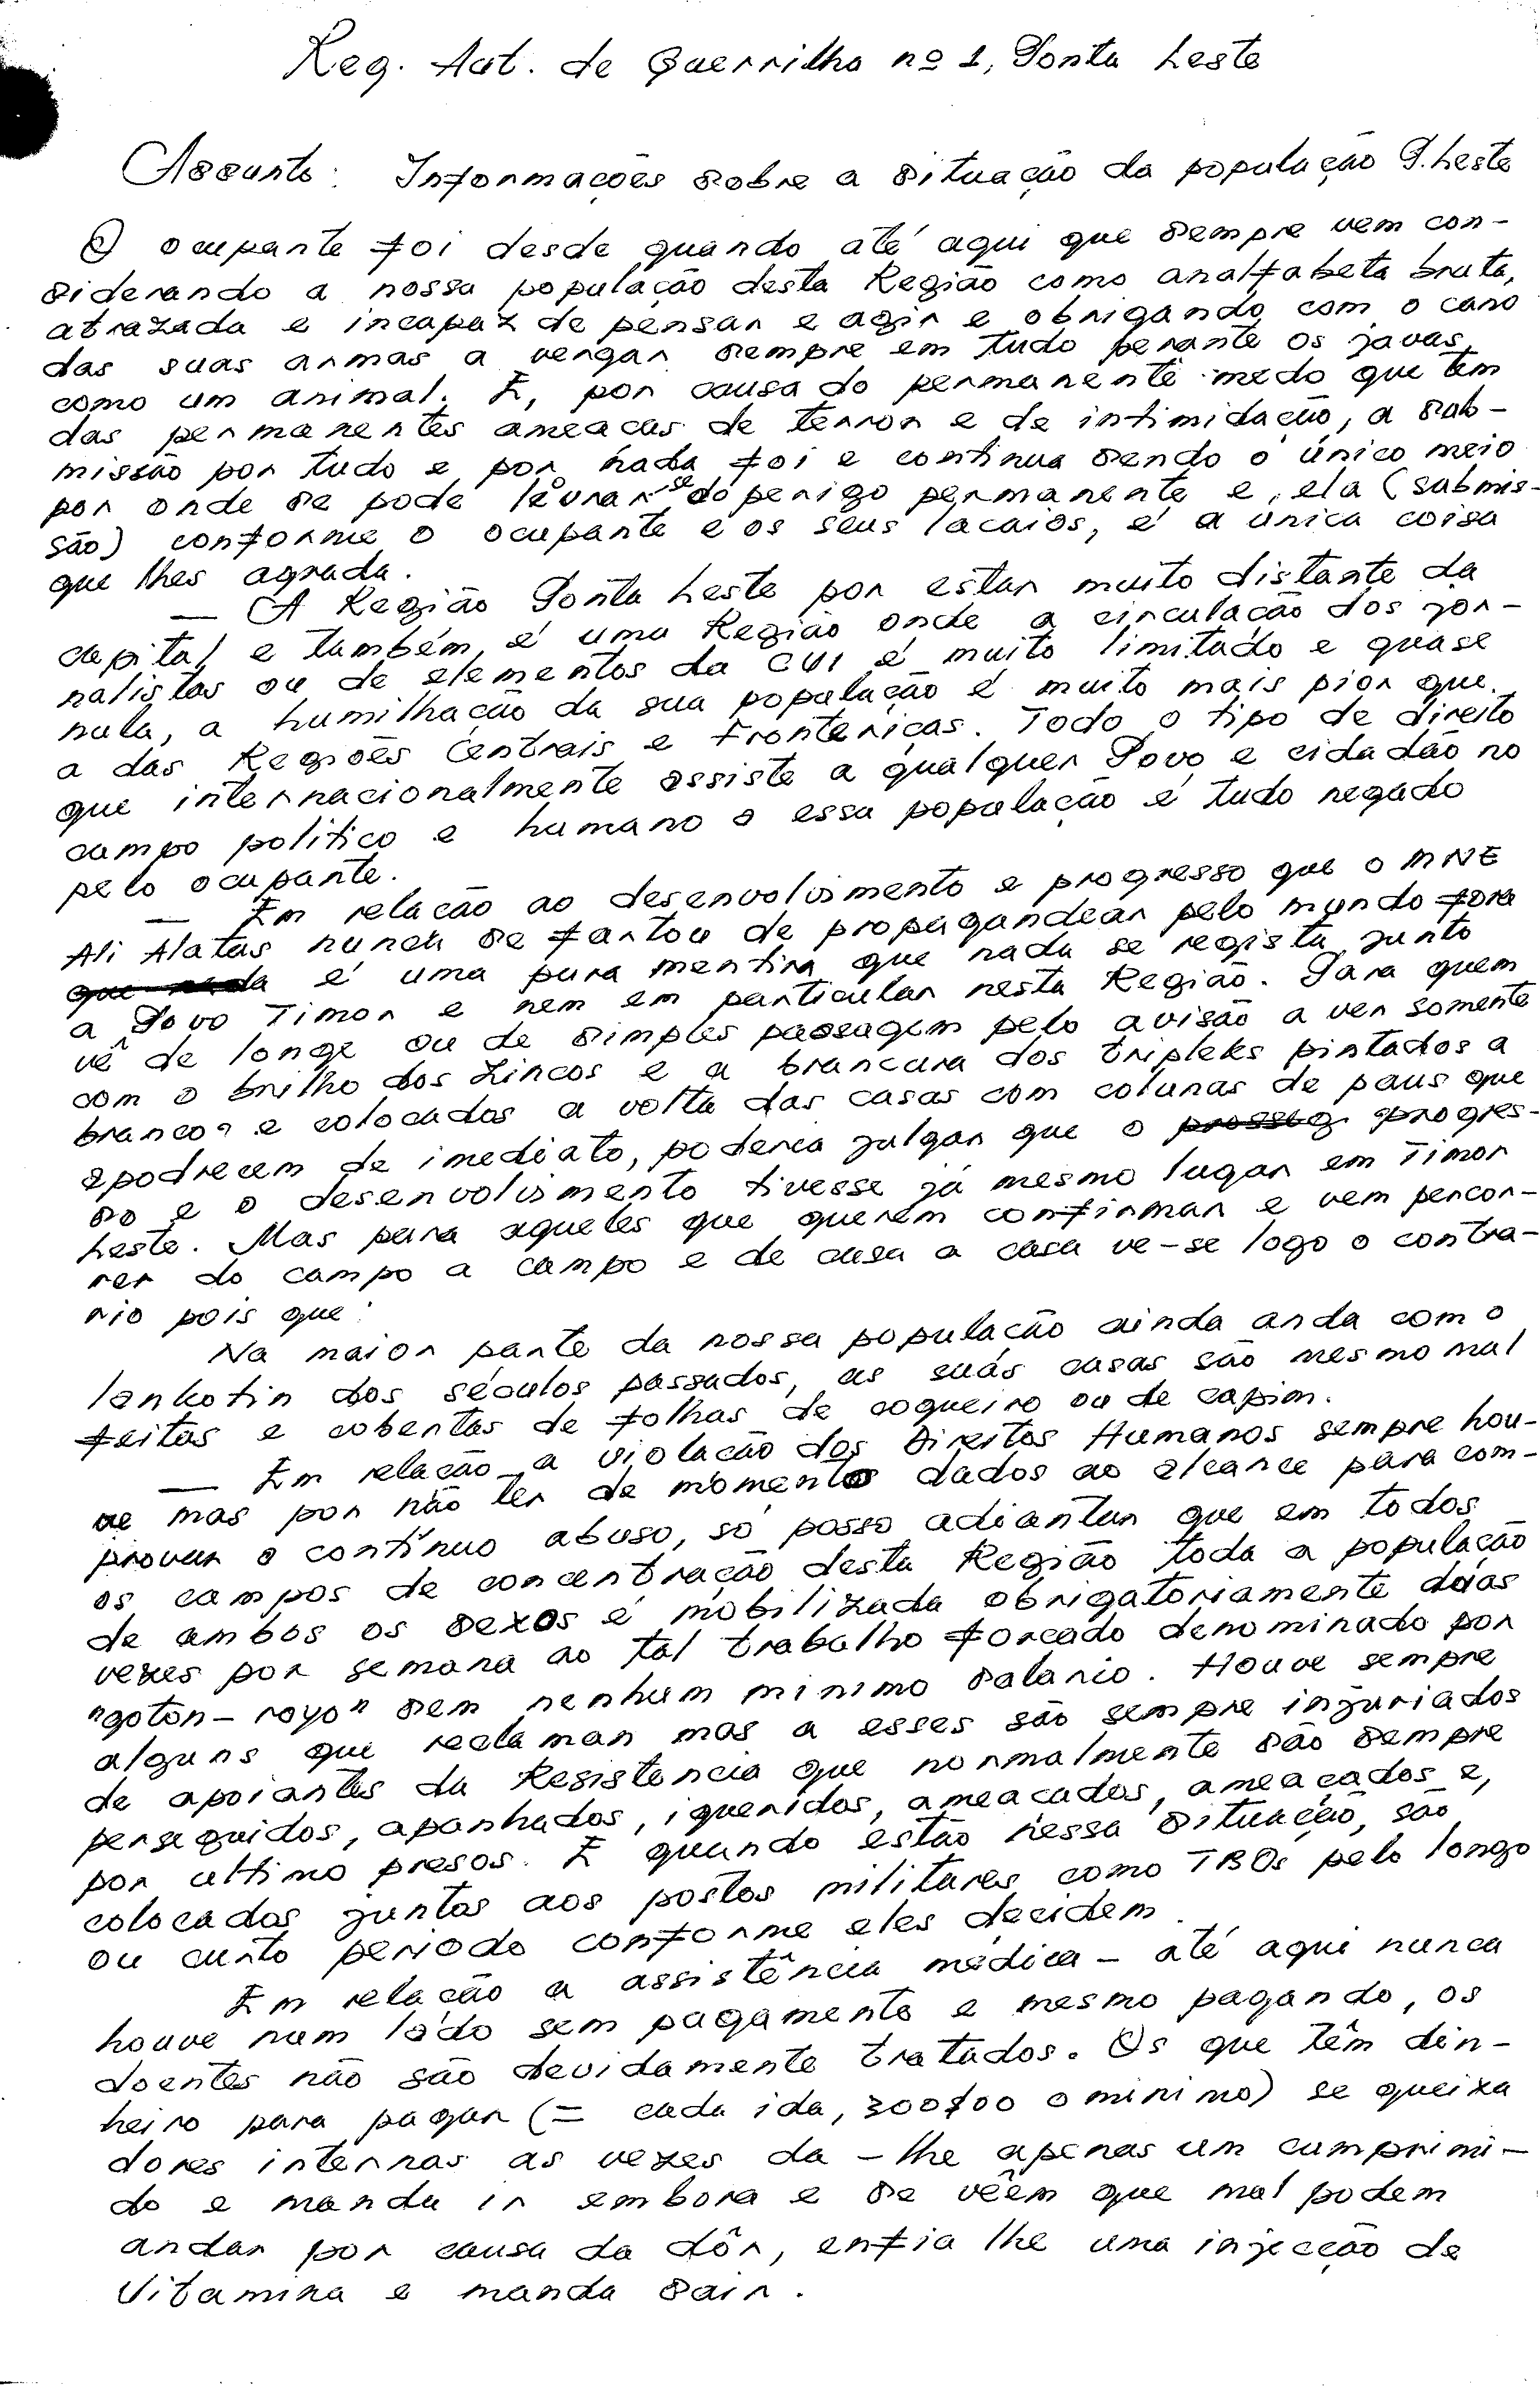 Reg. Aut. de Guerrilha nº 1, Ponta Leste
Assunto: Informações sobre a situação da população P. Leste
O ocupante foi desde quando até aqui que sempre vem con-
siderando a nossa população desta Região como analfabeta bruta,
atrazada e incapaz de pensar e agir e obrigando com o cano
das suas armas a vergar sempre em tudo perante os javas,
como um animal. E, por causa do permanente medo que têm
das permanentes ameaças de terror e de intimidação, a sub-
missão por tudo e por nada foi e continua sendo o único meio
por onde se pode levrar se do perigo permanente e, ela (submis-
são) conforme o ocupante e os seus lacaios, é a única coisa
que lhes agrada.
— A Região Ponta Leste por estar muito distante da
capital e também é uma Região onde a circulação dos jor-
nalistas ou de elementos da CVI é muito limitado e quase
nula, a humilhação da sua população é muito mais pior que
a das Regiões Centrais e Fronteriças. Todo o tipo de direito
que internacionalmente assiste a qualquer Povo e cidadão no
campo politico e humano a essa população é tudo negado
pelo ocupante.
— Em relação ao desenvolvimento e progresso que o MNE
Ali Alatas nunca se fartou de propagandear pelo mundo fora
que nada é uma pura mentira que nada se regista junto
a Povo Timor e nem em particular nesta Região. Para quem
vê de longe ou de simples passagem pelo avisão a ver somente
com o brilho dos zincos e a brancura dos tripleks pintados a
branco e colocados a volta das casas com colunas de paus que
apodrecem de imediato, poderia julgar que o prosseg. progres-
so e o desenvolvimento tivesse já mesmo lugar em Timor
Leste. Mas para aqueles que querem confirmar e vem percor-
rer do campo a campo e de casa a casa ve-se logo o contra-
rio pois que:
Na maior parte da nossa população ainda anda com o
lankotin dos séculos passados, as suas casas são mesmo mal
feitas e cobertas de folhas de coqueiro ou de capim.
— Em relação a violação dos Direitos Humanos sempre hou-
ve mas por não ter de momento dados ao alcance para com-
provar o contínuo abuso, só posso adiantar que em todos
os campos de concentração desta Região toda a população
de ambos os sexos é mobilizada obrigatoriamente duas
vezes por semana ao tal trabalho forçado denominado por
"goton-royo" sem nenhum minimo salario. Houve sempre
alguns que reclamam mas a esses são sempre injuriados
de apoiantes da Resistencia que normalmente são sempre
perseguidos, apanhados, iqueridos, ameacados, ameaçados e,
por ultimo presos. E quando estão nessa situação, são
colocados juntos aos postos militares como TBOs pelo longo
ou curto periodo conforme eles decidem.
Em relação a assistência médica - até aqui nunca
houve num lado sem pagamento e mesmo pagando, os
doentes não são devidamente tratados. Os que têm din-
heiro para pagar (= cada ida, 300$00 o minimo) se queixa
dores internas as vezes da-lhe apenas um cumprimi-
do e manda ir embora e se vêem que mal podem
andar por causa da dôr, enfia lhe uma injecção de
Vitamina e manda sair.